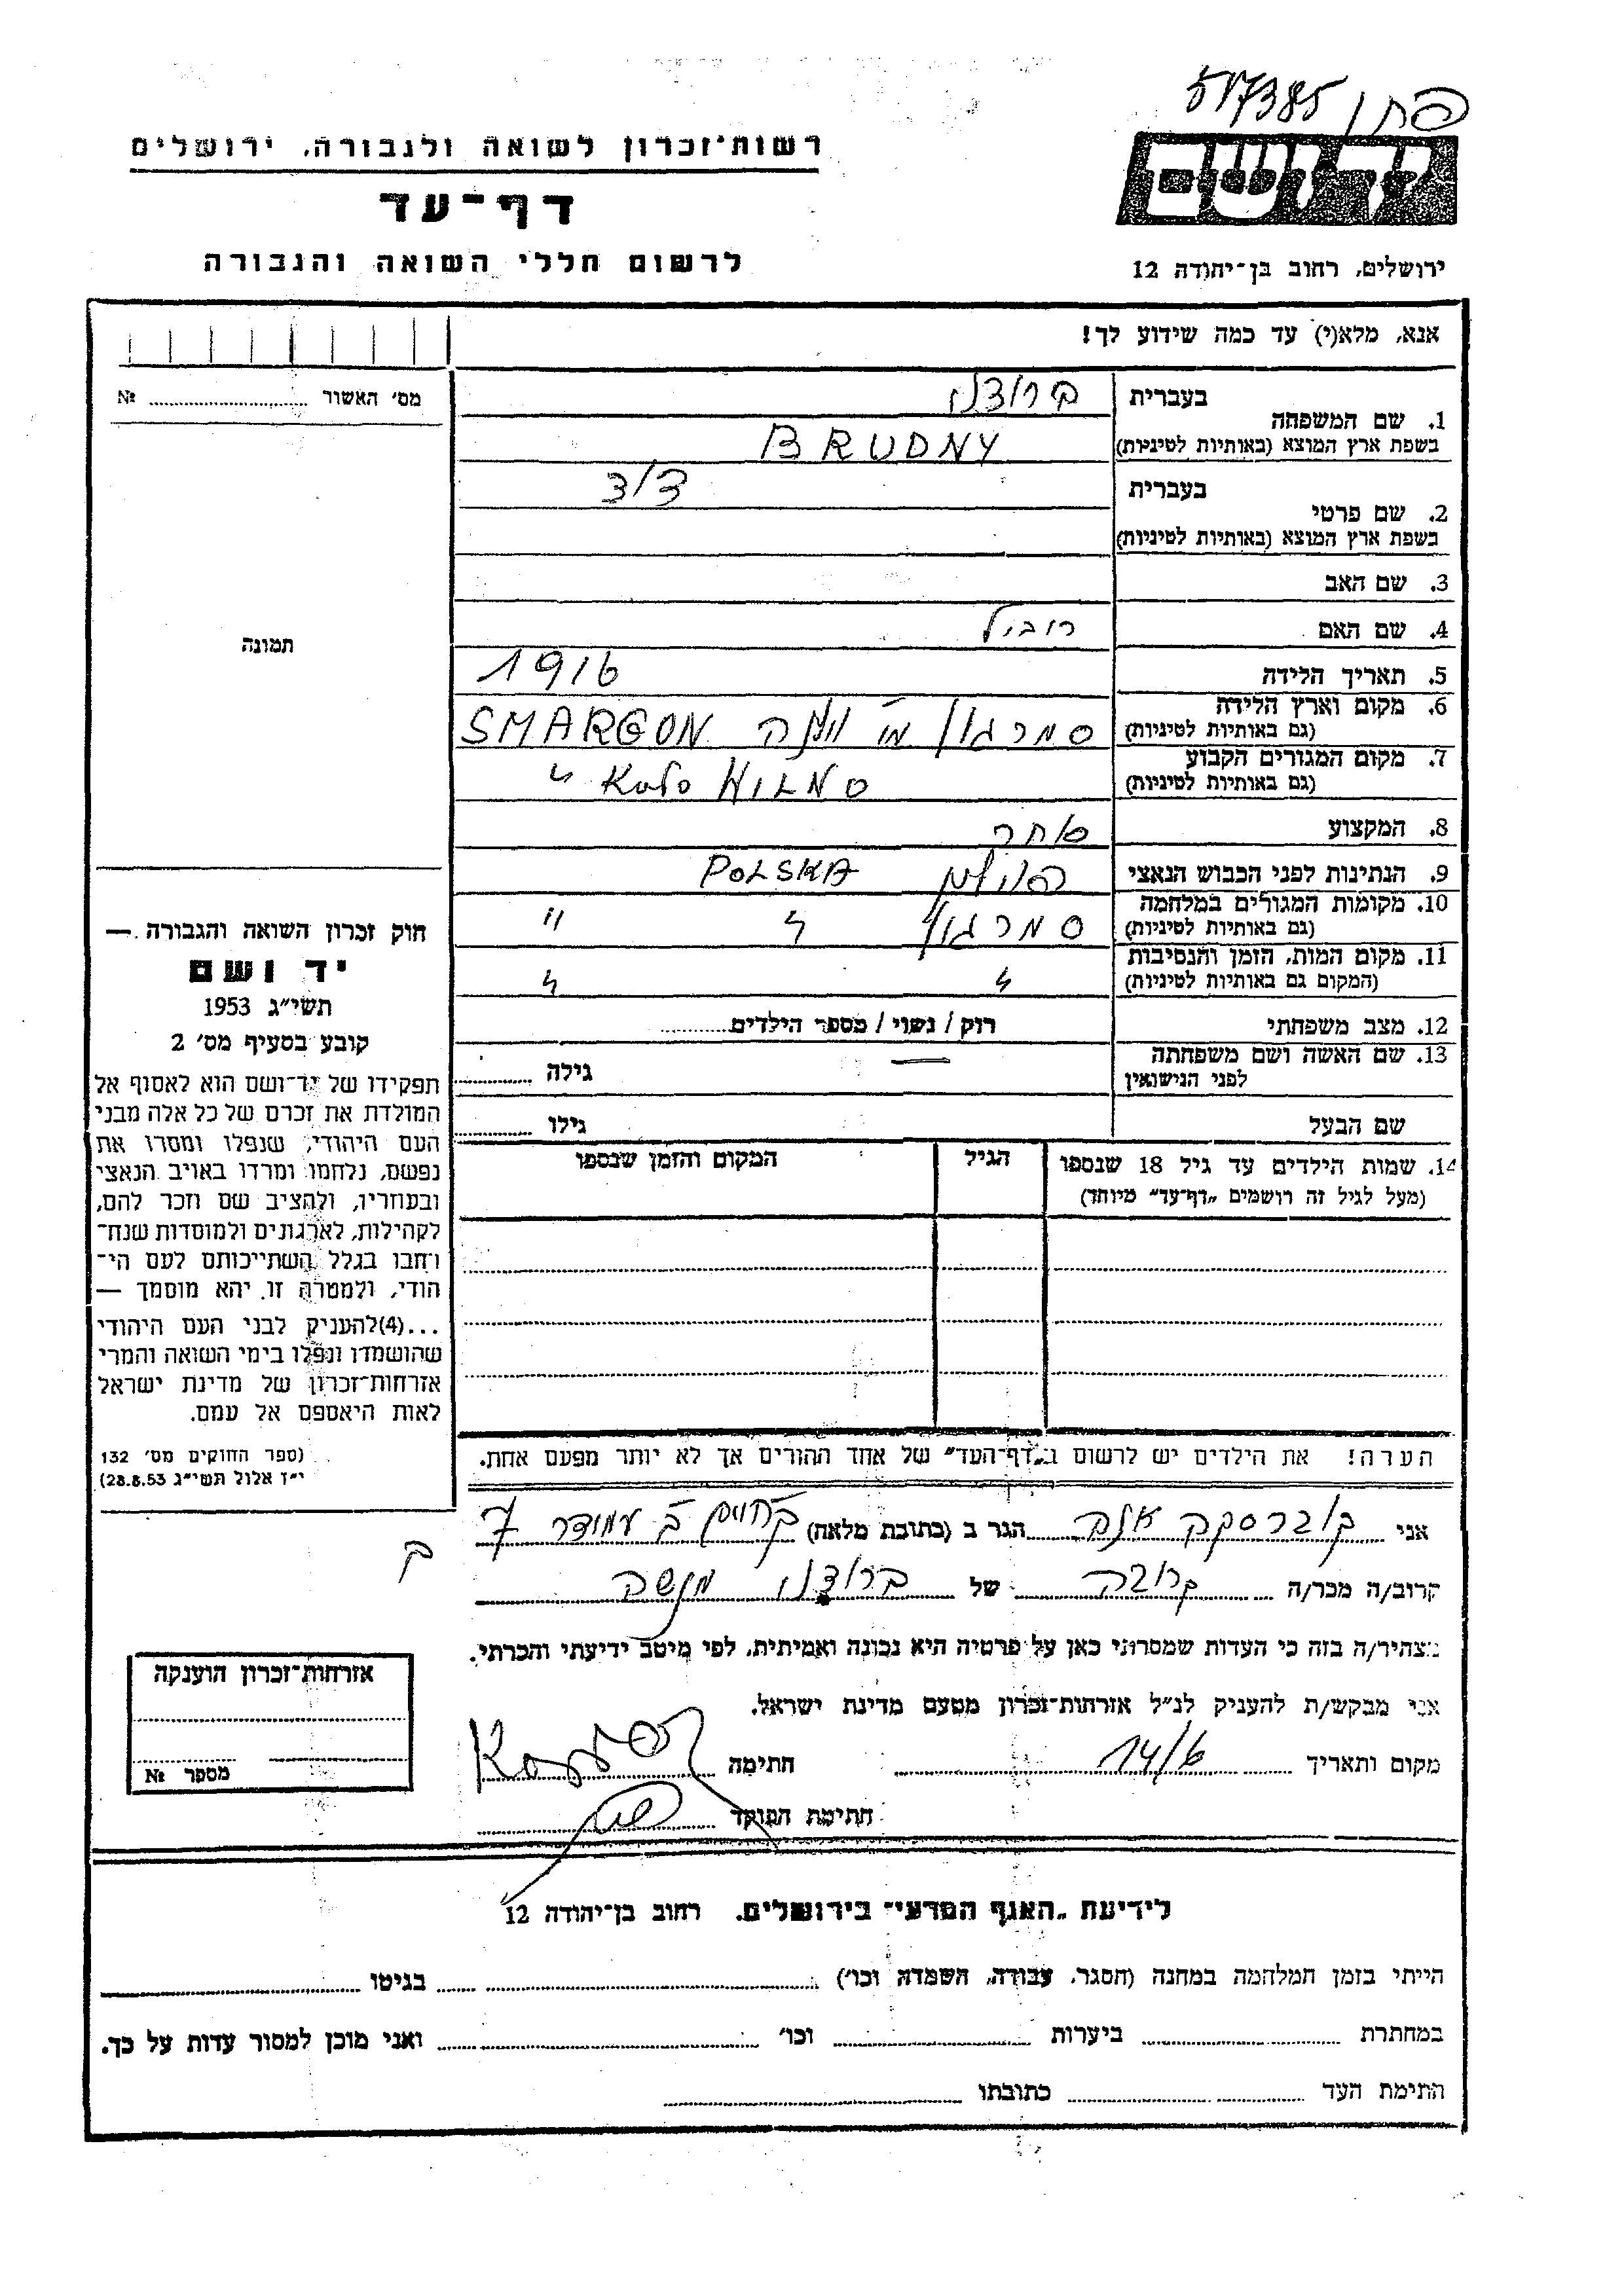 517385
רשות־זכרון לשואה ולגבורה, ירושלים
יד ושם
דף־עד
לרשום חללי השואה והגבורה
ירושלים, רחוב בן־יהודה 12
אנא, מלא(י) עד כמה שידוע לך!
מס׳ האשור № 
בעברית ברודני
1. שם המשפחה
בשפת ארץ המוצא (באותיות לטיניות) BRUDNY
בעברית דוד
2. שם פרטי
בשפת ארץ המוצא (באותיות לטיניות)
3. שם האב
4. שם האם
5. תאריך הלידה 1916
6. מקום וארץ הלידה
(גם באותיות לטיניות) סמרגון SMARGON
7. מקום המגורים הקבוע
(גם באותיות לטיניות) KOŁO WILNO
8. המקצוע סוחר
9. הנתינות לפני הכבוש הנאצי POLSKA
10. מקומות המגורים במלחמה
(גם באותיות לטיניות) סמרגון " "
11. מקום המות, הזמן והנסיבות
(המקום גם באותיות לטיניות) " "
12. מצב משפחתי רוק / נשוי / מספר הילדים
13. שם האשה ושם משפחתה
לפני הנישואין — גילה
שם הבעל גילו
14. שמות הילדים עד גיל 18 שנספו הגיל המקום והזמן שנספו
(מעל לגיל זה רושמים „דף־עד" מיוחד)
תמונה
חוק זכרון השואה והגבורה —
יד ושם
תשי״ג 1953
קובע בסעיף מס׳ 2
תפקידו של יד־ושם הוא לאסוף אל
המולדת את זכרם של כל אלה מבני
העם היהודי, שנפלו ומסרו את
נפשם, נלחמו ומרדו באויב הנאצי
ובעוזריו, ולהציב שם וזכר להם,
לקהילות, לארגונים ולמוסדות שנח־
רחבו בגלל השתייכותם לעם הי־
הודי, ולמטרה זו יהא מוסמך —
...(4)להעניק לבני העם היהודי
שהושמדו ונפלו בימי השואה והמרי
אזרחות־זכרון של מדינת ישראל
לאות היאספם אל עמם.
(ספר החוקים מס׳ 132
י״ז אלול תשי״ג 28.8.53)
הערה! את הילדים יש לרשום ב„דף־העד" של אחד ההורים אך לא יותר מפעם אחת.
אני הגר ב (כתובת מלאה)
קרוב/ה מכר/ה קרובה של ברודני מנשה
מצהיר/ה בזה כי העדות שמסרתי כאן על פרטיה היא נכונה ואמיתית, לפי מיטב ידיעתי והכרתי.
אני מבקש/ת להעניק לנ״ל אזרחות־זכרון מטעם מדינת ישראל.
מקום ותאריך 14/6 חתימה
חתימת הפוקד
אזרחות־זכרון הוענקה
מספר №
לידיעת „האגף המדעי" בירושלים. רחוב בן־יהודה 12
הייתי בזמן המלחמה במחנה (הסגר, עבודה, השמדה וכו׳) בגיטו
במחתרת ביערות וכו׳ ואני מוכן למסור עדות על כך.
התימת העד כתובתו